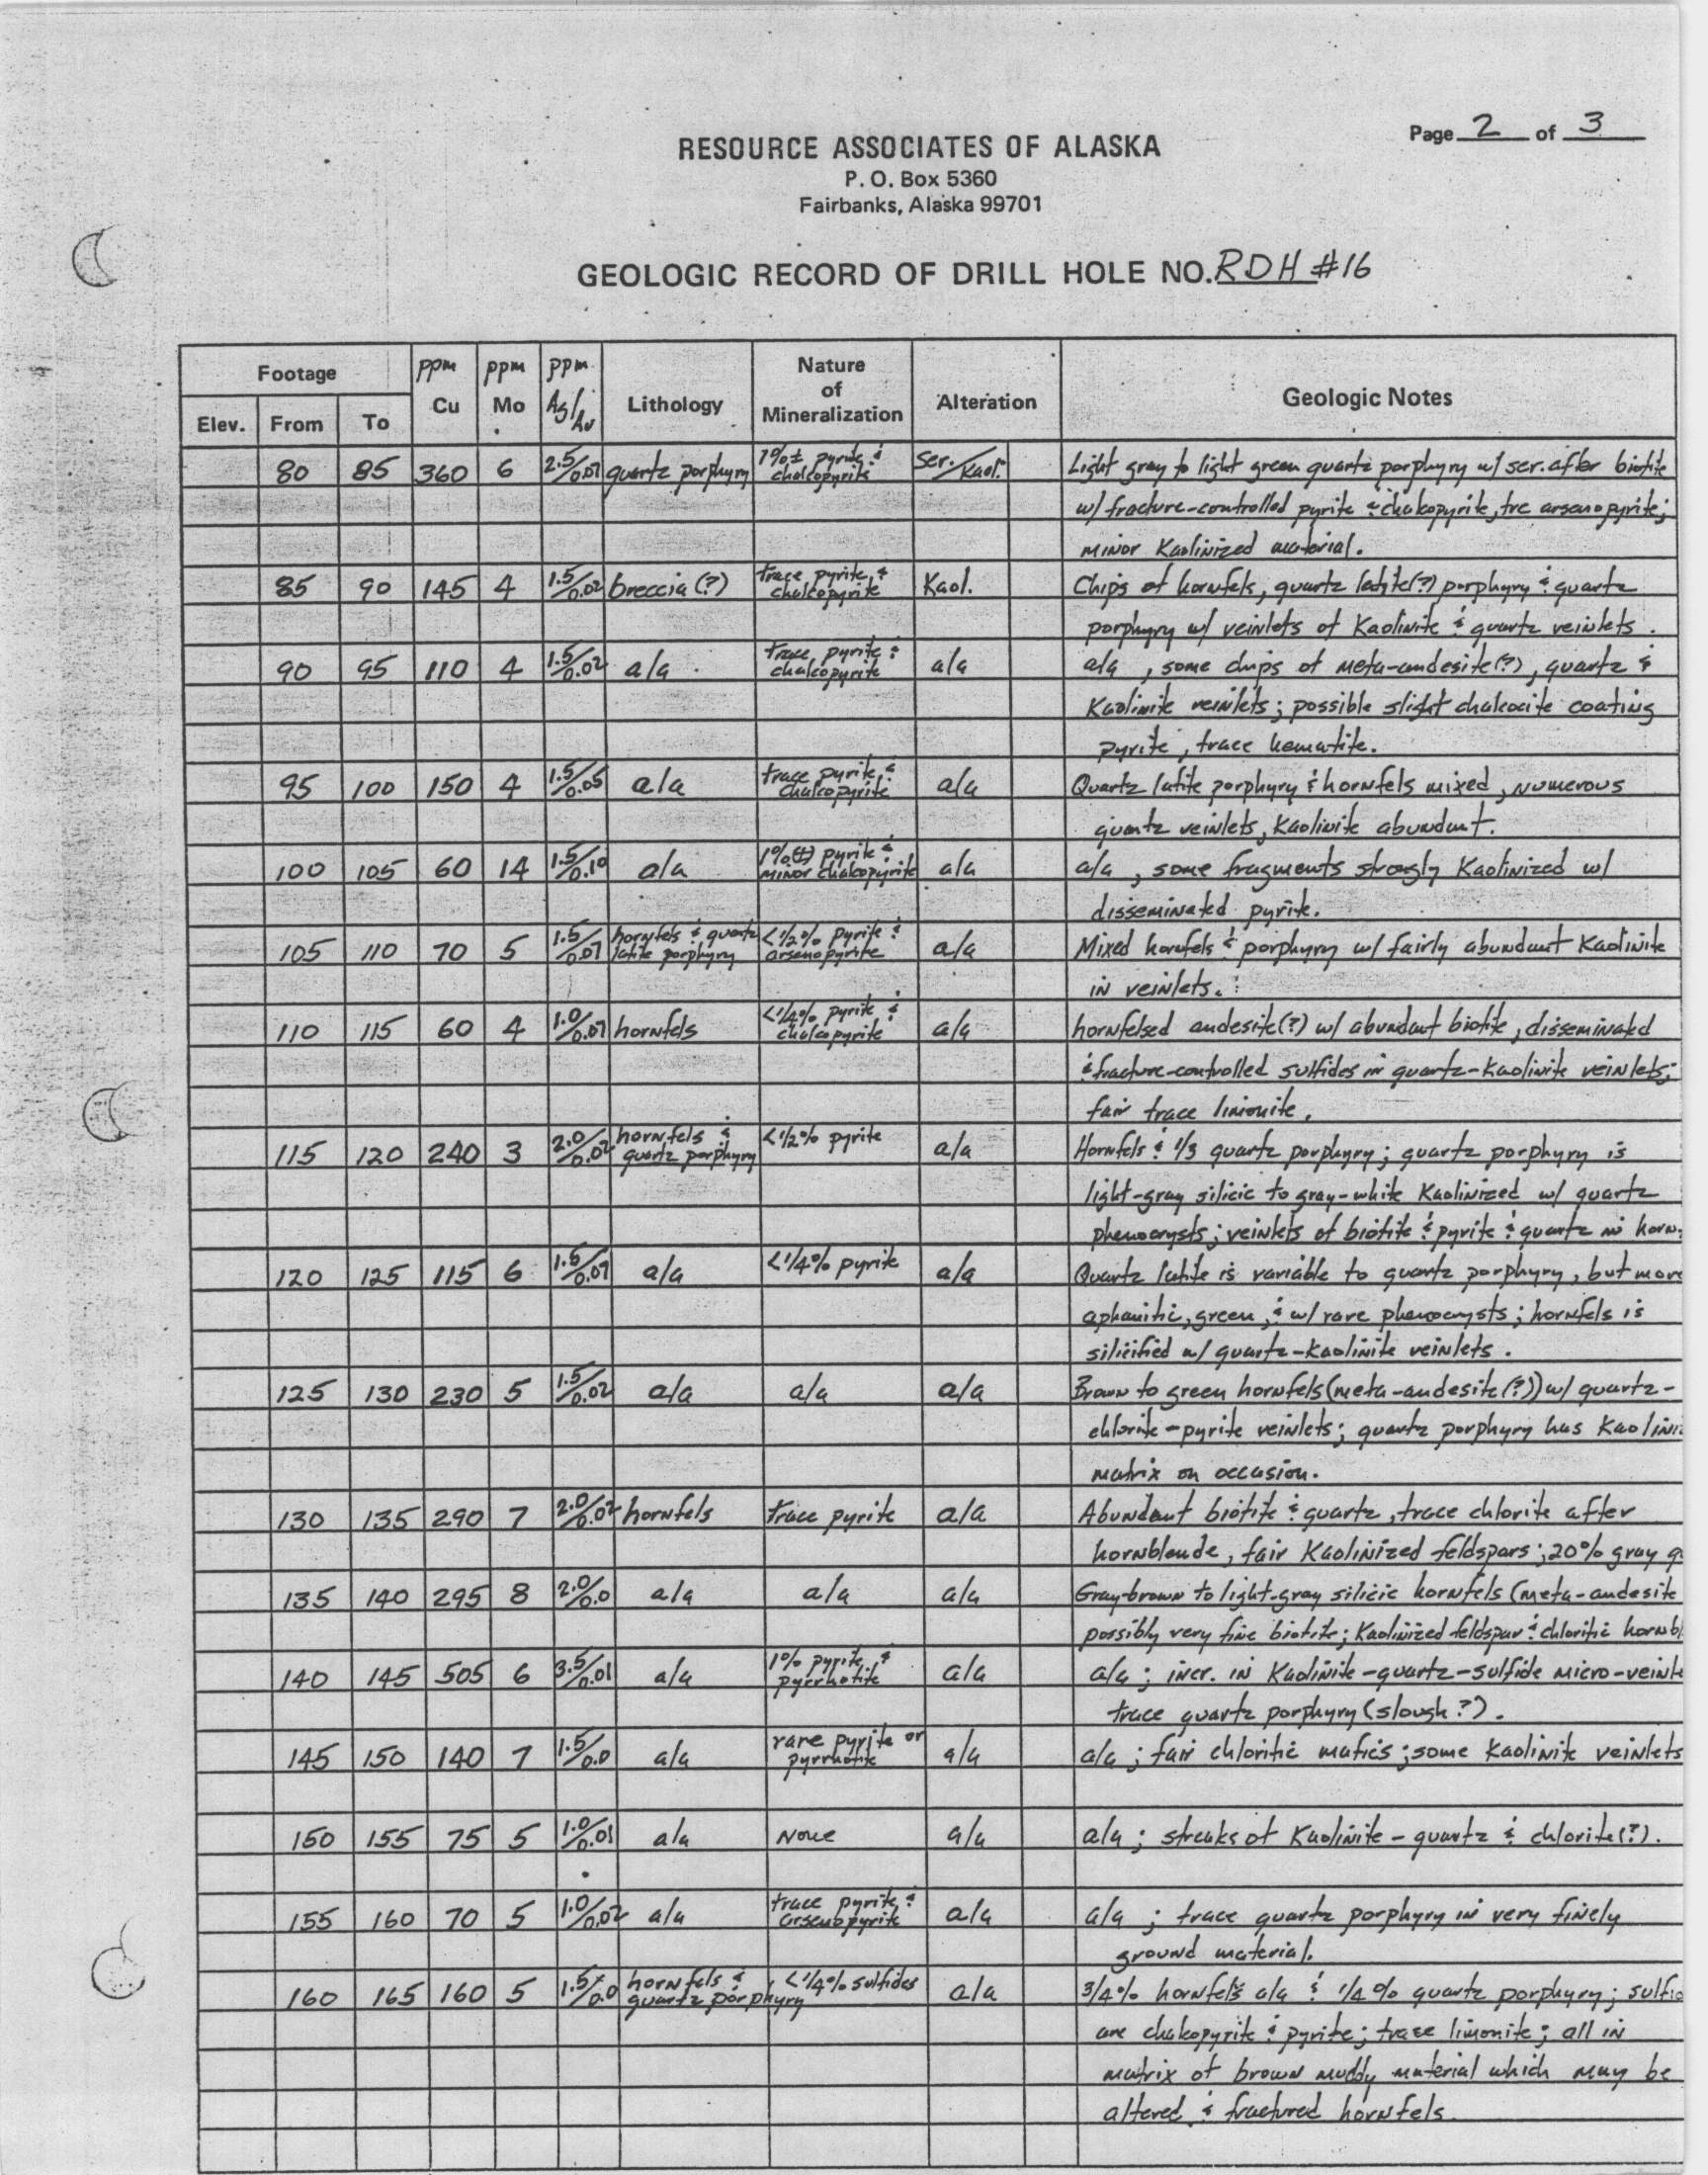 Page 2 of 3
RESOURCE ASSOCIATES OF ALASKA
P. O. Box 5360
Fairbanks, Alaska 99701
GEOLOGIC RECORD OF DRILL HOLE NO. RDH #16
Footage ppm Cu ppm Mo ppm Ag/Au Lithology Nature of Mineralization Alteration Geologic Notes
Elev. From To
80 85 360 6 2.5/0.07 quartz porphyry 1%± pyrite & chalcopyrite Ser./Kaol. Light gray to light green quartz porphyry w/ ser. after biotite
w/ fracture-controlled pyrite & chalcopyrite, trc arsenopyrite;
minor Kaolinized material.
85 90 145 4 1.5/0.02 breccia (?) trace pyrite & chalcopyrite Kaol. Chips of hornfels, quartz latite(?) porphyry & quartz
porphyry w/ veinlets of Kaolinite & quartz veinlets.
90 95 110 4 1.5/0.02 a/a trace pyrite & chalcopyrite a/a a/a, some chips of meta-andesite(?), quartz &
Kaolinite veinlets; possible slight chalcocite coating
pyrite, trace hematite.
95 100 150 4 1.5/0.05 a/a trace pyrite & chalcopyrite a/a Quartz latite porphyry & hornfels mixed, numerous
quartz veinlets, Kaolinite abundant.
100 105 60 14 1.5/0.10 a/a 1%(±) pyrite & minor chalcopyrite a/a a/a, some fragments strongly Kaolinized w/
disseminated pyrite.
105 110 70 5 1.5/0.07 hornfels & quartz latite porphyry <1/2% pyrite & arsenopyrite a/a Mixed hornfels & porphyry w/ fairly abundant Kaolinite
in veinlets.
110 115 60 4 1.0/0.07 hornfels <1/4% pyrite & chalcopyrite a/a hornfelsed andesite(?) w/ abundant biotite, disseminated
& fracture-controlled sulfides in quartz-Kaolinite veinlets;
fair trace limonite.
115 120 240 3 2.0/0.02 hornfels & quartz porphyry <1/2% pyrite a/a Hornfels & 1/3 quartz porphyry; quartz porphyry is
light-gray silicic to gray-white Kaolinized w/ quartz
phenocrysts; veinlets of biotite & pyrite & quartz in horn.
120 125 115 6 1.5/0.07 a/a <1/4% pyrite a/a Quartz latite is variable to quartz porphyry, but more
aphanitic, green, & w/ rare phenocrysts; hornfels is
silicified w/ quartz-Kaolinite veinlets.
125 130 230 5 1.5/0.02 a/a a/a a/a Brown to green hornfels (meta-andesite(?)) w/ quartz-
chlorite-pyrite veinlets; quartz porphyry has Kaolini
matrix on occasion.
130 135 290 7 2.0/0.02 hornfels trace pyrite a/a Abundant biotite & quartz, trace chlorite after
hornblende, fair Kaolinized feldspars; 20% gray q
135 140 295 8 2.0/0.0 a/a a/a a/a Gray-brown to light-gray silicic hornfels (meta-andesite
possibly very fine biotite; Kaolinized feldspar & chloritic hornbl
140 145 505 6 3.5/0.01 a/a 1% pyrite & pyrrhotite a/a a/a; incr. in Kaolinite-quartz-sulfide micro-veinle
trace quartz porphyry (slough?).
145 150 140 7 1.5/0.0 a/a rare pyrite or pyrrhotite a/a a/a; fair chloritic mafics; some Kaolinite veinlets
150 155 75 5 1.0/0.01 a/a None a/a a/a; streaks of Kaolinite-quartz & chlorite(?).
155 160 70 5 1.0/0.02 a/a trace pyrite & arsenopyrite a/a a/a; trace quartz porphyry in very finely
ground material.
160 165 160 5 1.5/0.0 hornfels & quartz porphyry <1/4% sulfides a/a 3/4% hornfels a/a & 1/4% quartz porphyry; sulfid
are chalcopyrite & pyrite; trace limonite; all in
matrix of brown muddy material which may be
altered & fractured hornfels.